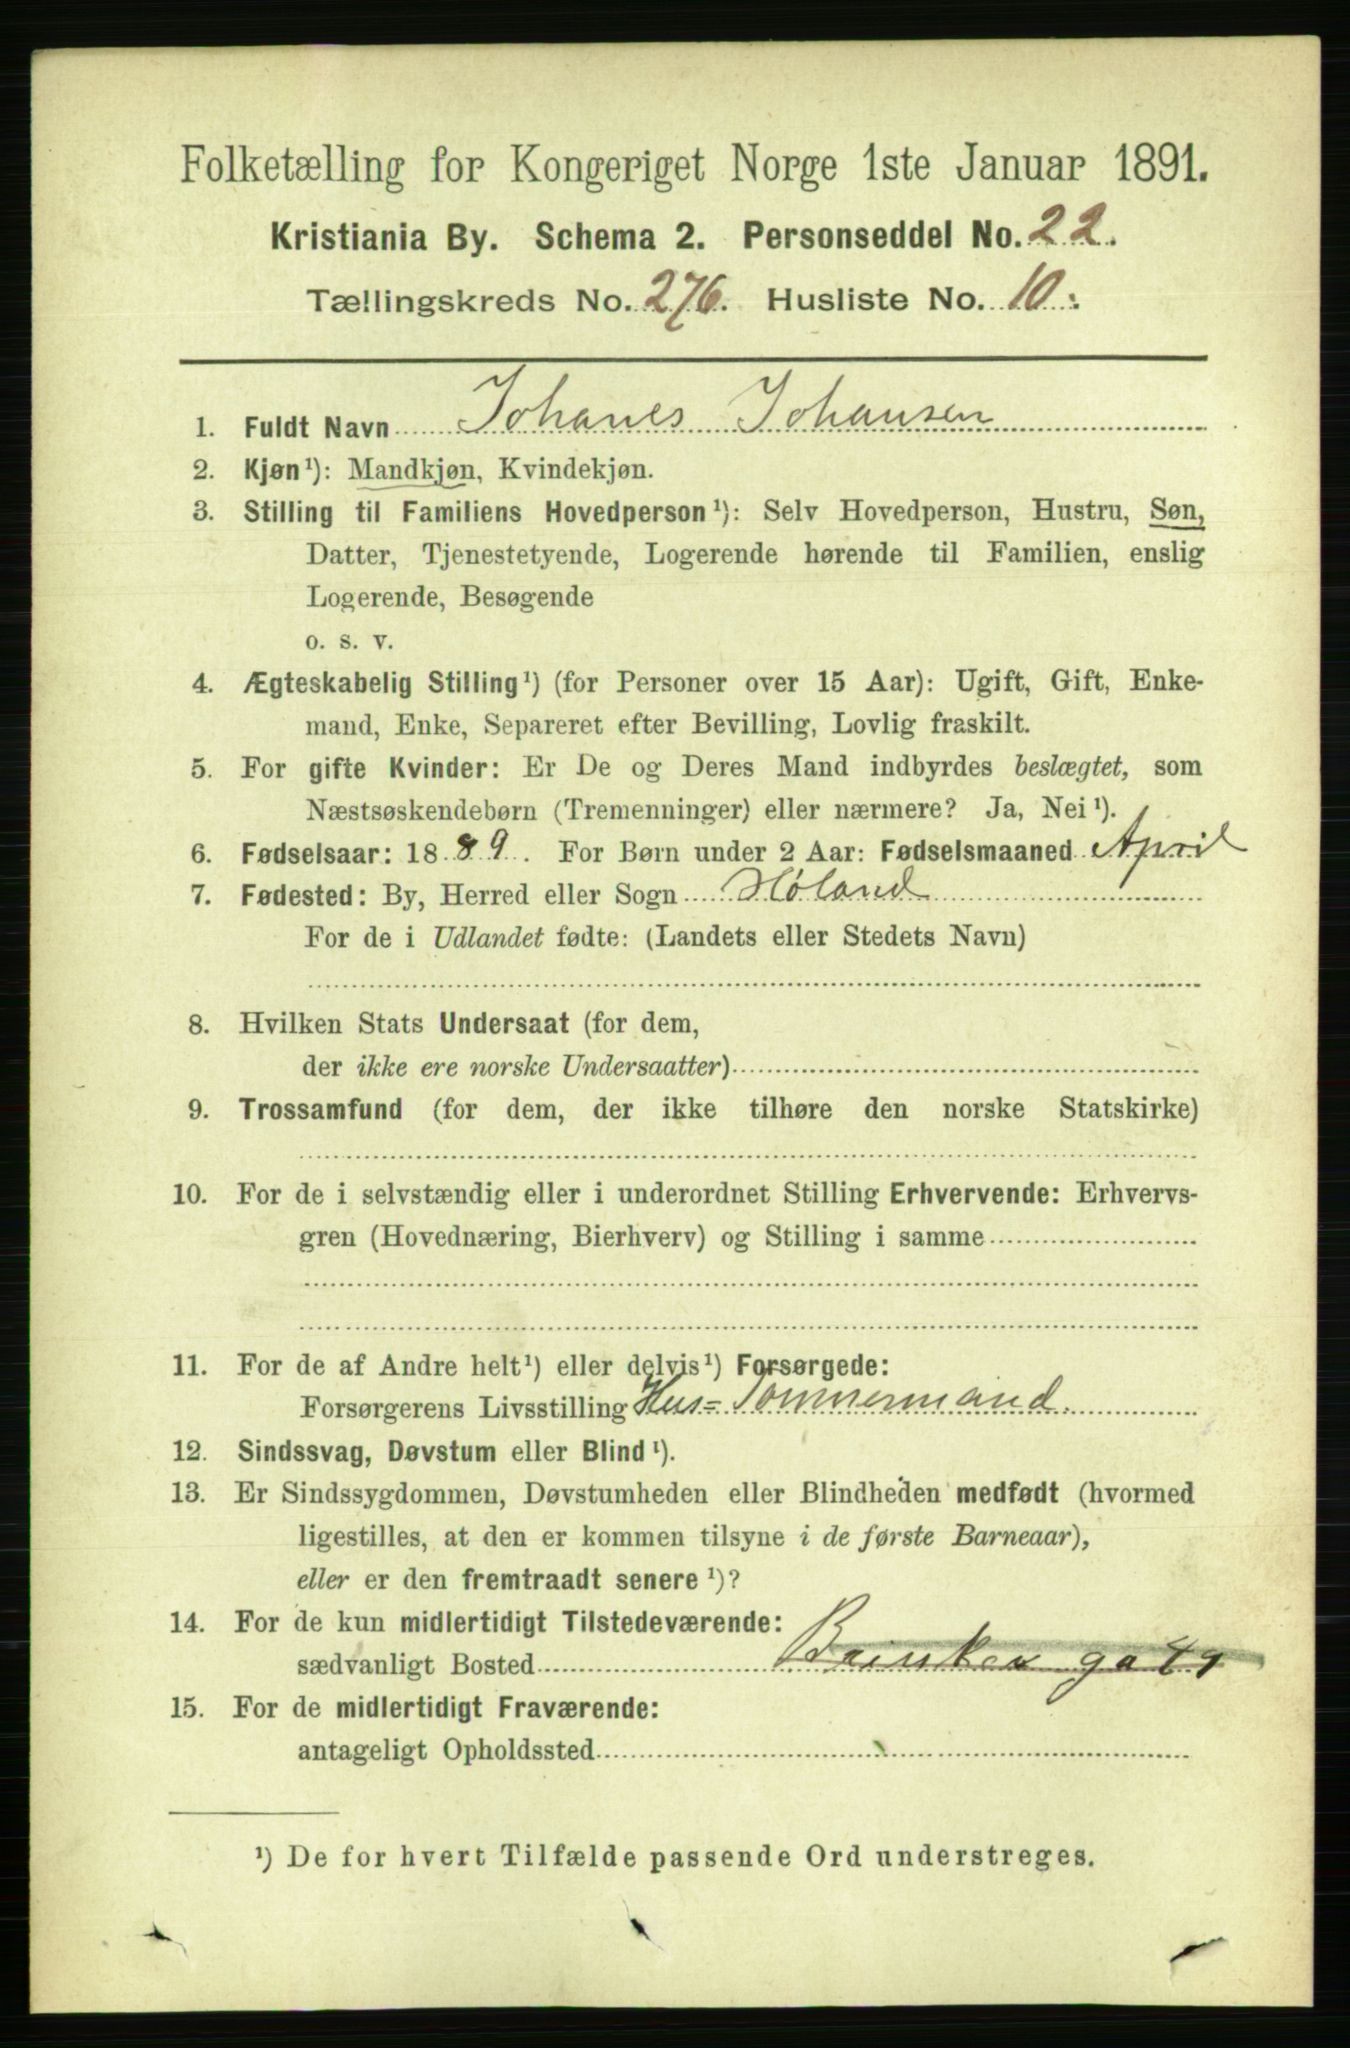 Folketælling for Kongeriget Norge 1ste Januar 1891.
Kristiania By. Schema 2. Personseddel No. 22.
Tællingskreds No. 276. Husliste No. 10.
1. Fuldt Navn Johanes Johansen
2. Kjøn¹): Mandkjøn, Kvindekjøn.
3. Stilling til Familiens Hovedperson¹): Selv Hovedperson, Hustru, Søn,
Datter, Tjenestetyende, Logerende hørende til Familien, enslig
Logerende, Besøgende
o. s. v.
4. Ægteskabelig Stilling¹) (for Personer over 15 Aar): Ugift, Gift, Enke-
mand, Enke, Separeret efter Bevilling, Lovlig fraskilt.
5. For gifte Kvinder: Er De og Deres Mand indbyrdes beslægtet, som
Næstsøskendebørn (Tremenninger) eller nærmere? Ja, Nei¹).
6. Fødselsaar: 1889. For Børn under 2 Aar: Fødselsmaaned April
7. Fødested: By, Herred eller Sogn Høland
For de i Udlandet fødte: (Landets eller Stedets Navn)
8. Hvilken Stats Undersaat (for dem,
der ikke ere norske Undersaatter)
9. Trossamfund (for dem, der ikke tilhøre den norske Statskirke)
10. For de i selvstændig eller i underordnet Stilling Erhvervende: Erhvervs-
gren (Hovednæring, Bierhverv) og Stilling i samme
11. For de af Andre helt¹) eller delvis¹) Forsørgede:
Forsørgerens Livsstilling Hus=Tømmermand.
12. Sindssvag, Døvstum eller Blind¹).
13. Er Sindssygdommen, Døvstumheden eller Blindheden medfødt (hvormed
ligestilles, at den er kommen tilsyne i de første Barneaar),
eller er den fremtraadt senere¹)?
14. For de kun midlertidigt Tilstedeværende:
sædvanligt Bosted
15. For de midlertidigt Fraværende:
antageligt Opholdssted
¹) De for hvert Tilfælde passende Ord understreges.